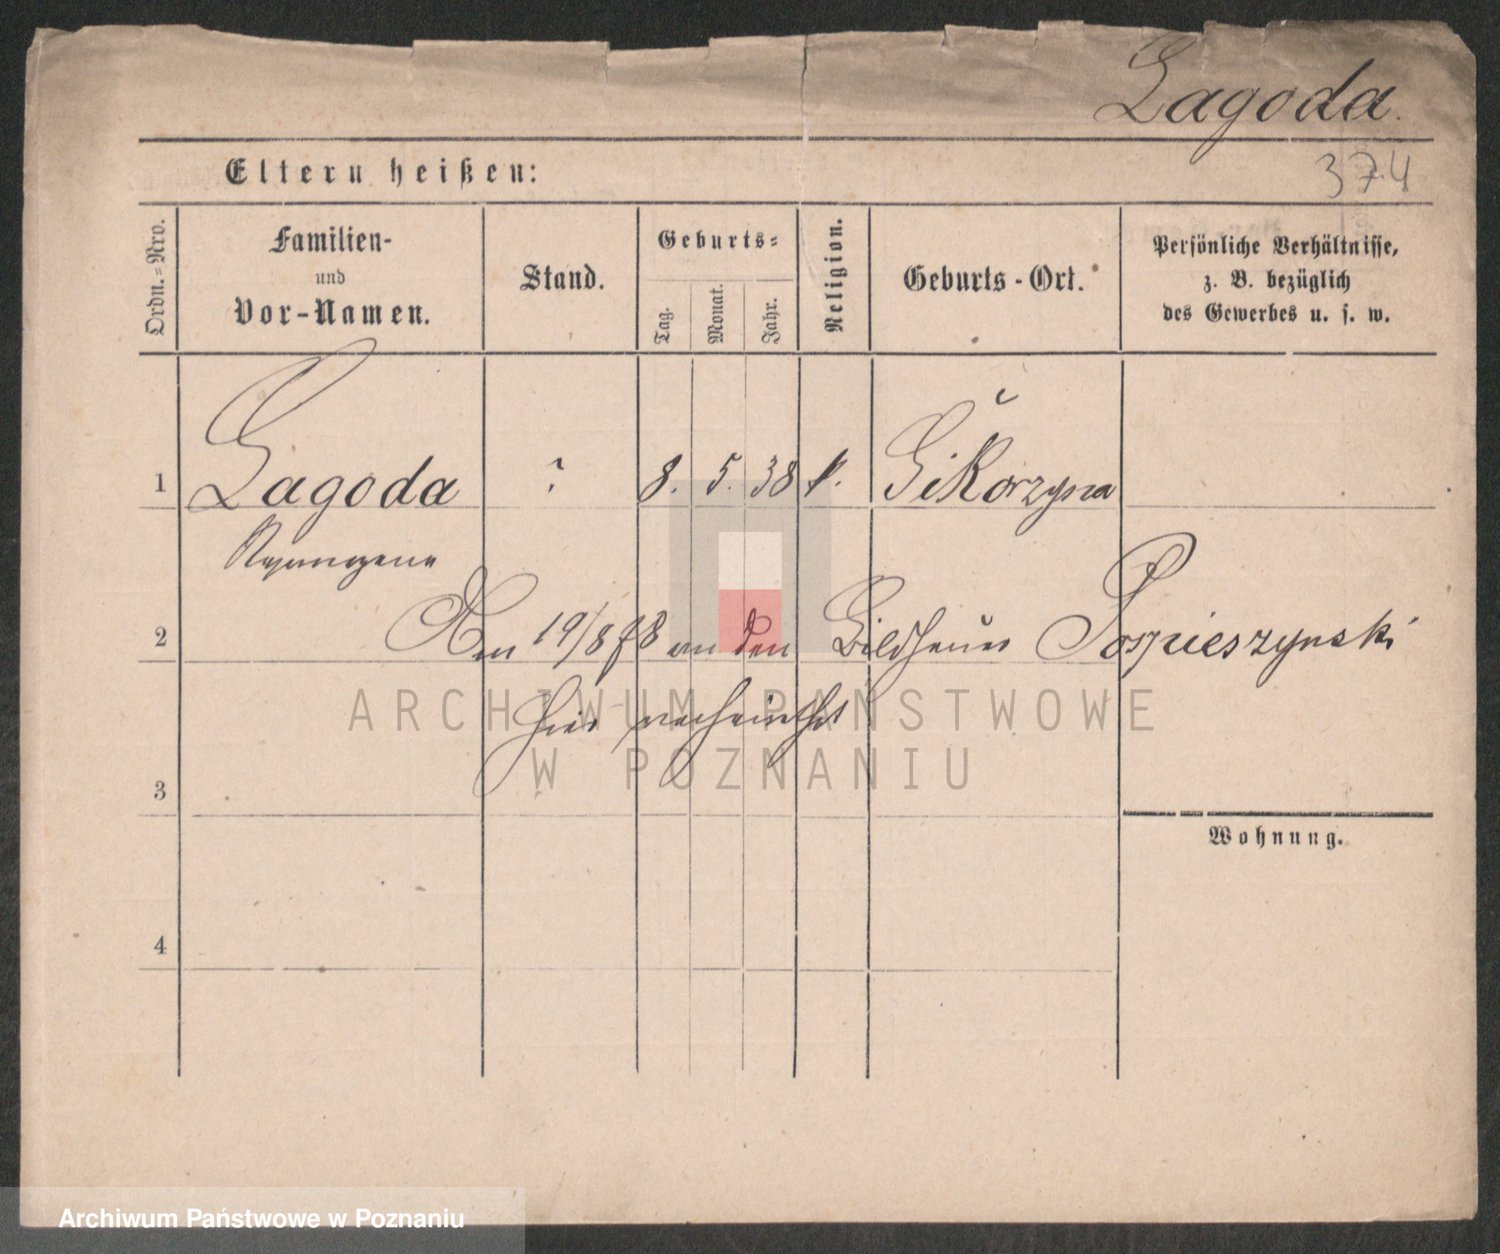 Lagoda.
374
Eltern heißen:
Ordn.-Nro.
Familien-
und
Vor-Namen.
Stand.
Geburts-
Tag.
Monat.
Jahr.
Religion.
Geburts-Ort.
Persönliche Verhältnisse,
z. B. bezüglich
des Gewerbes u. s. w.
1 Lagoda ? 8. 5. 38 k. Sikorzyna
2 Am 19/8 78 an den Bildhauer Pospieszynski
hier verheirathet
3
Wohnung.
4
ARCHIWUM PAŃSTWOWE
W POZNANIU
Archiwum Państwowe w Poznaniu